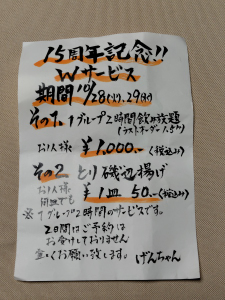 15周年記念!!
Wサービス
期間 10/28(火).29(水)
その1. 1グループ2時間飲み放題
(ラストオーダー1H半)
お1人様 ¥1,000.-(税込み)
その2 とり磯辺揚げ
お1人様
何皿でも ¥1皿 50.-(税込み)
※1グループ2時間のサービスです。
2日間はご予約は
お受けしておりません
宜しくお願い致します。 げんちゃん